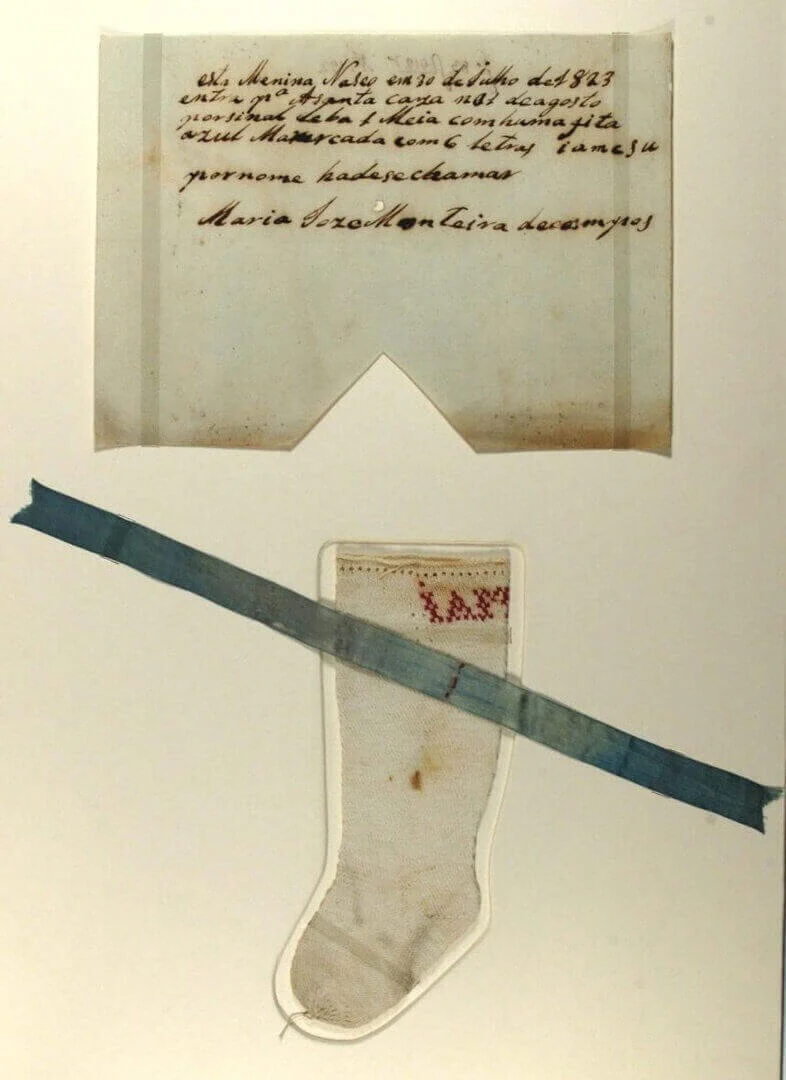 esta Menina Naseo em 30 de Julho de 1823
entra pª Asanta caza no 1 de agosto
porsinal leba 1 Meia com huma fita
azul Marercada com 6 letras iamesu
por nome hadese chamar
Maria Joze Monteira decampos
iam